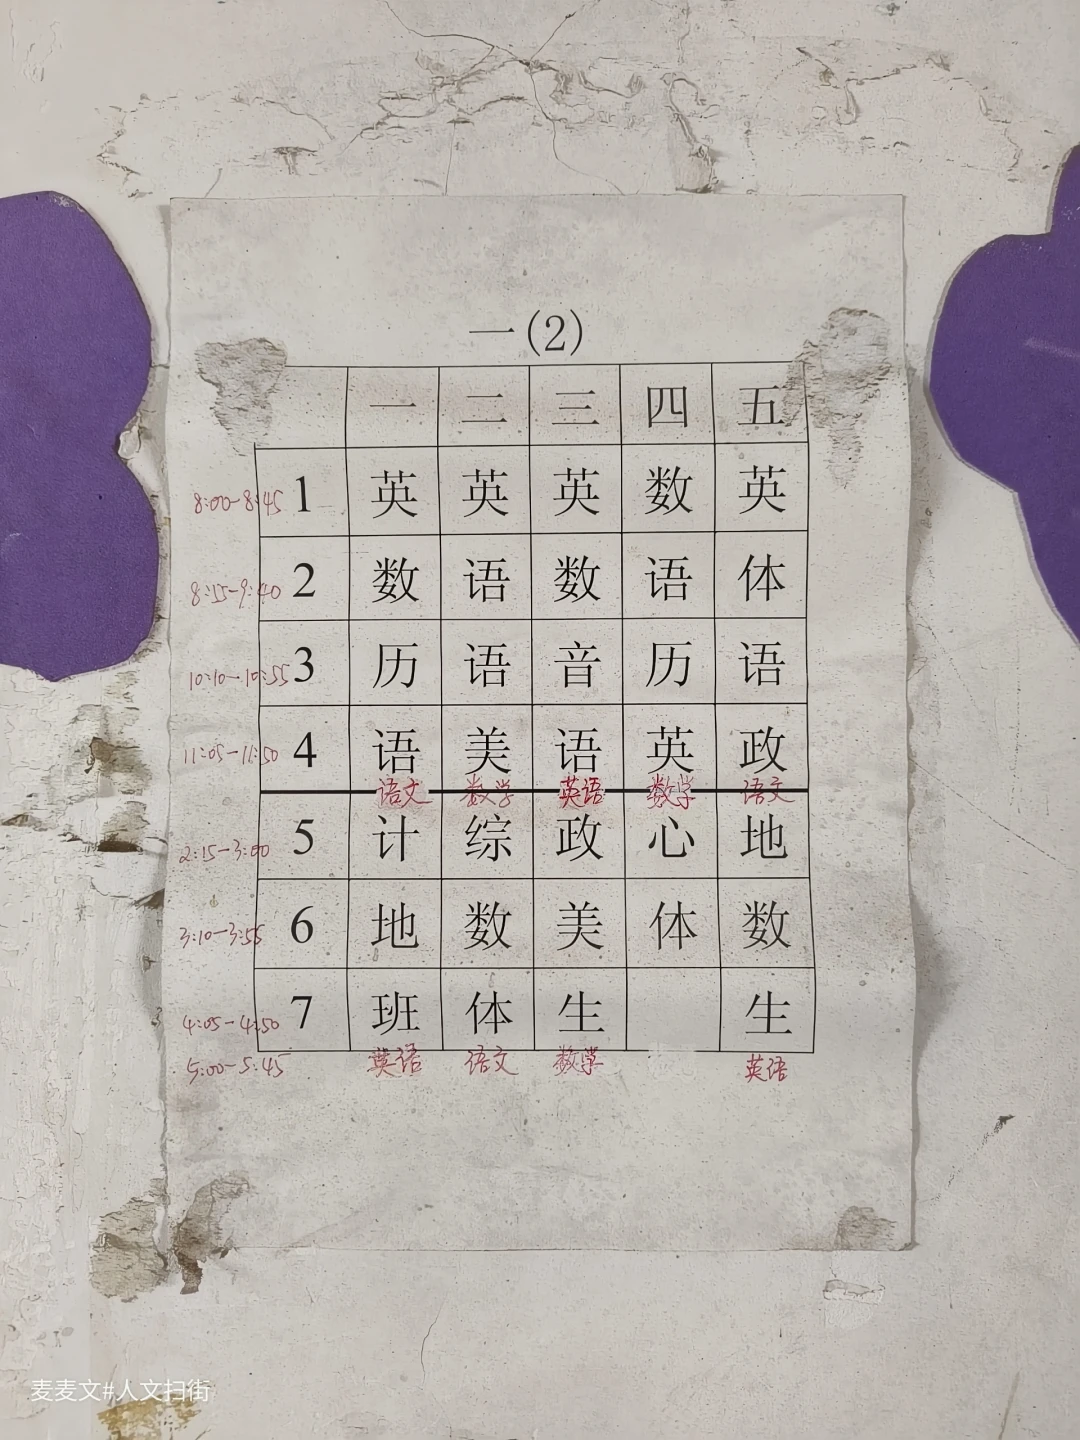 一(2)
一 二 三 四 五
8:00-8:45 1 英 英 英 数 英
8:55-9:40 2 数 语 数 语 体
10:10-10:55 3 历 语 音 历 语
11:05-11:50 4 语 美 语 英 政
语文 数学 英语 数学 语文
2:15-3:00 5 计 综 政 心 地
3:10-3:55 6 地 数 美 体 数
4:05-4:50 7 班 体 生 生
5:00-5:45 英语 语文 数学 英语
麦麦文#人文扫街